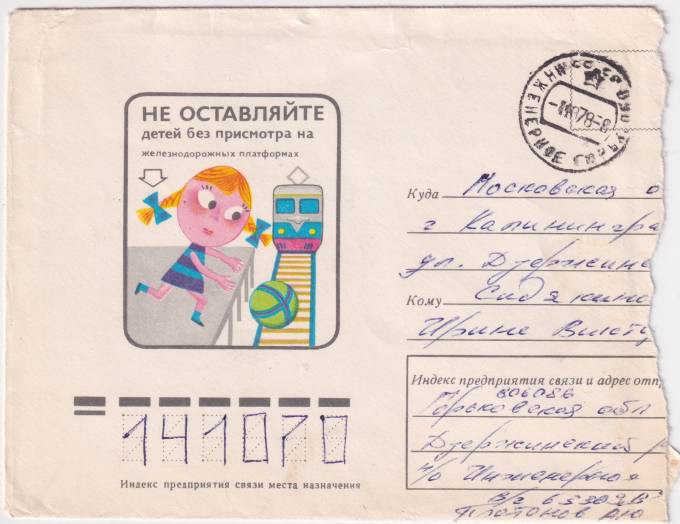 НЕ ОСТАВЛЯЙТЕ
детей без присмотра на
железнодорожных платформах
Куда Московская о
г Калинингра
ул. Дзержинс
Кому
Ирине Викту
Индекс предприятия связи и адрес отп
606086
Горьковская обл
Дзержинский р
п/о Инженерное
в/ч
Платонов
141070
Индекс предприятия связи места назначения